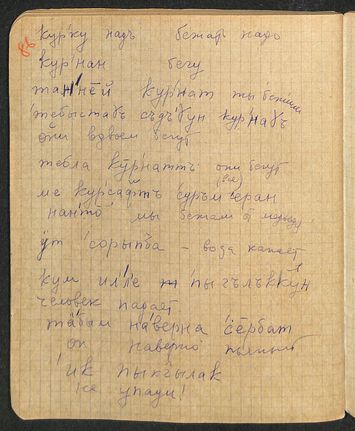 86
кур'ку надъ бежать надо
кур'нан бегу
таннёй курнат ты бежишь
тебыстаɣъ съдъɣун кур'наɣъ
они вдвоём бегут
тебла курнаттъ они бегут
ме курсадтъ суръм еран
мы бежали медведу
ӱт' сорыпба – вода капает
кум илле пыгълъккун
человек падает
табым наверна сёрбат
он наверно пьяный
ик пыкгылак
не упади!